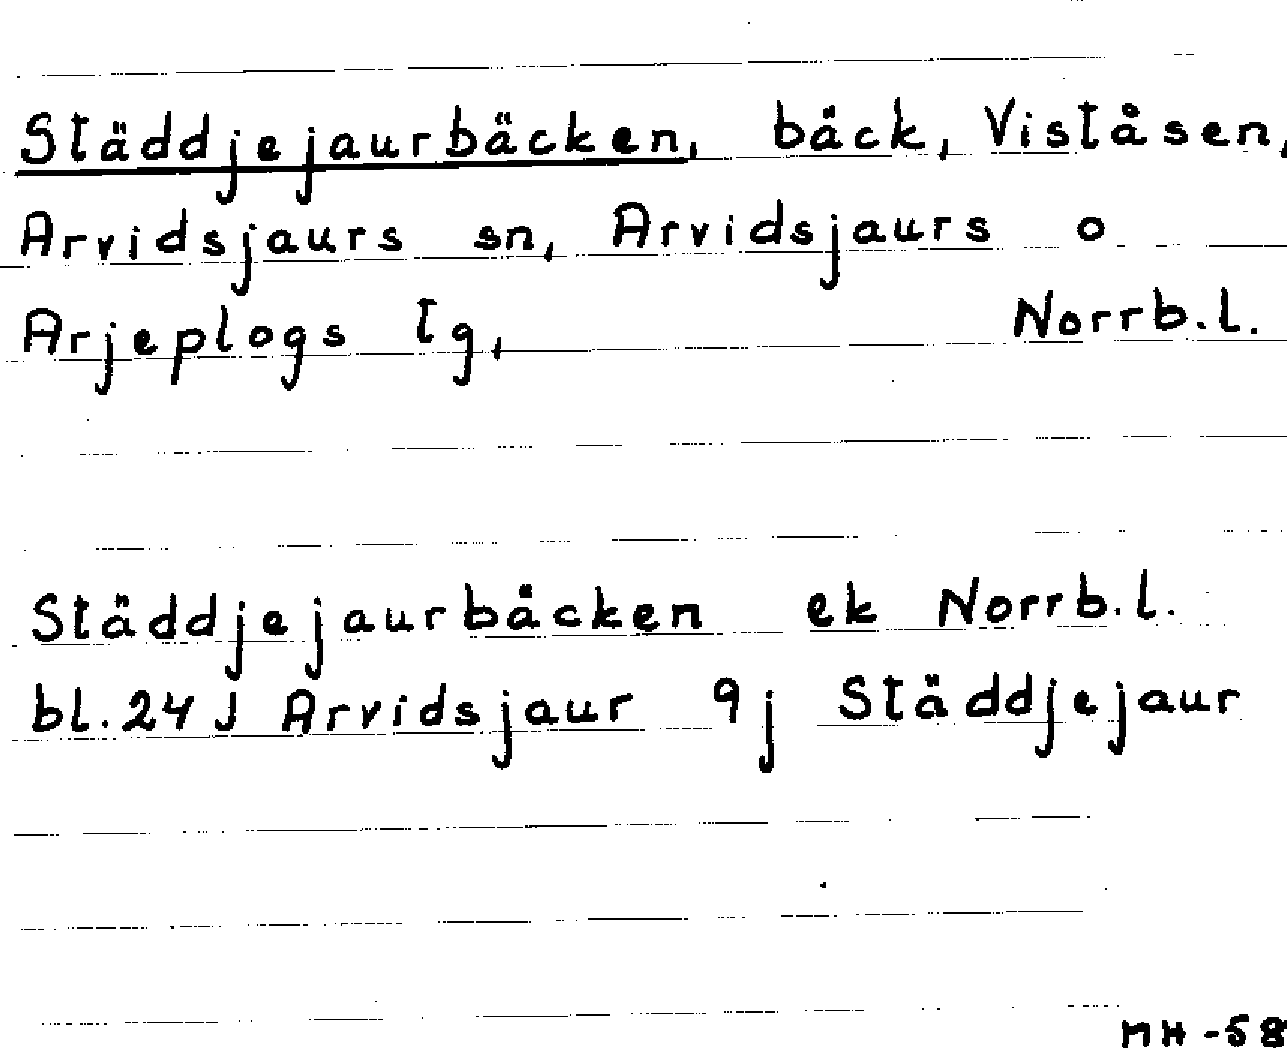 Städdjejaurbäcken, bäck, Viståsen,
Arvidsjaurs sn, Arvidsjaurs o
Arjeplogs tg, Norrb.l.
Städdjejaurbäcken ek Norrb.l.
bl. 24 J Arvidsjaur 9j Städdjejaur
MH -58